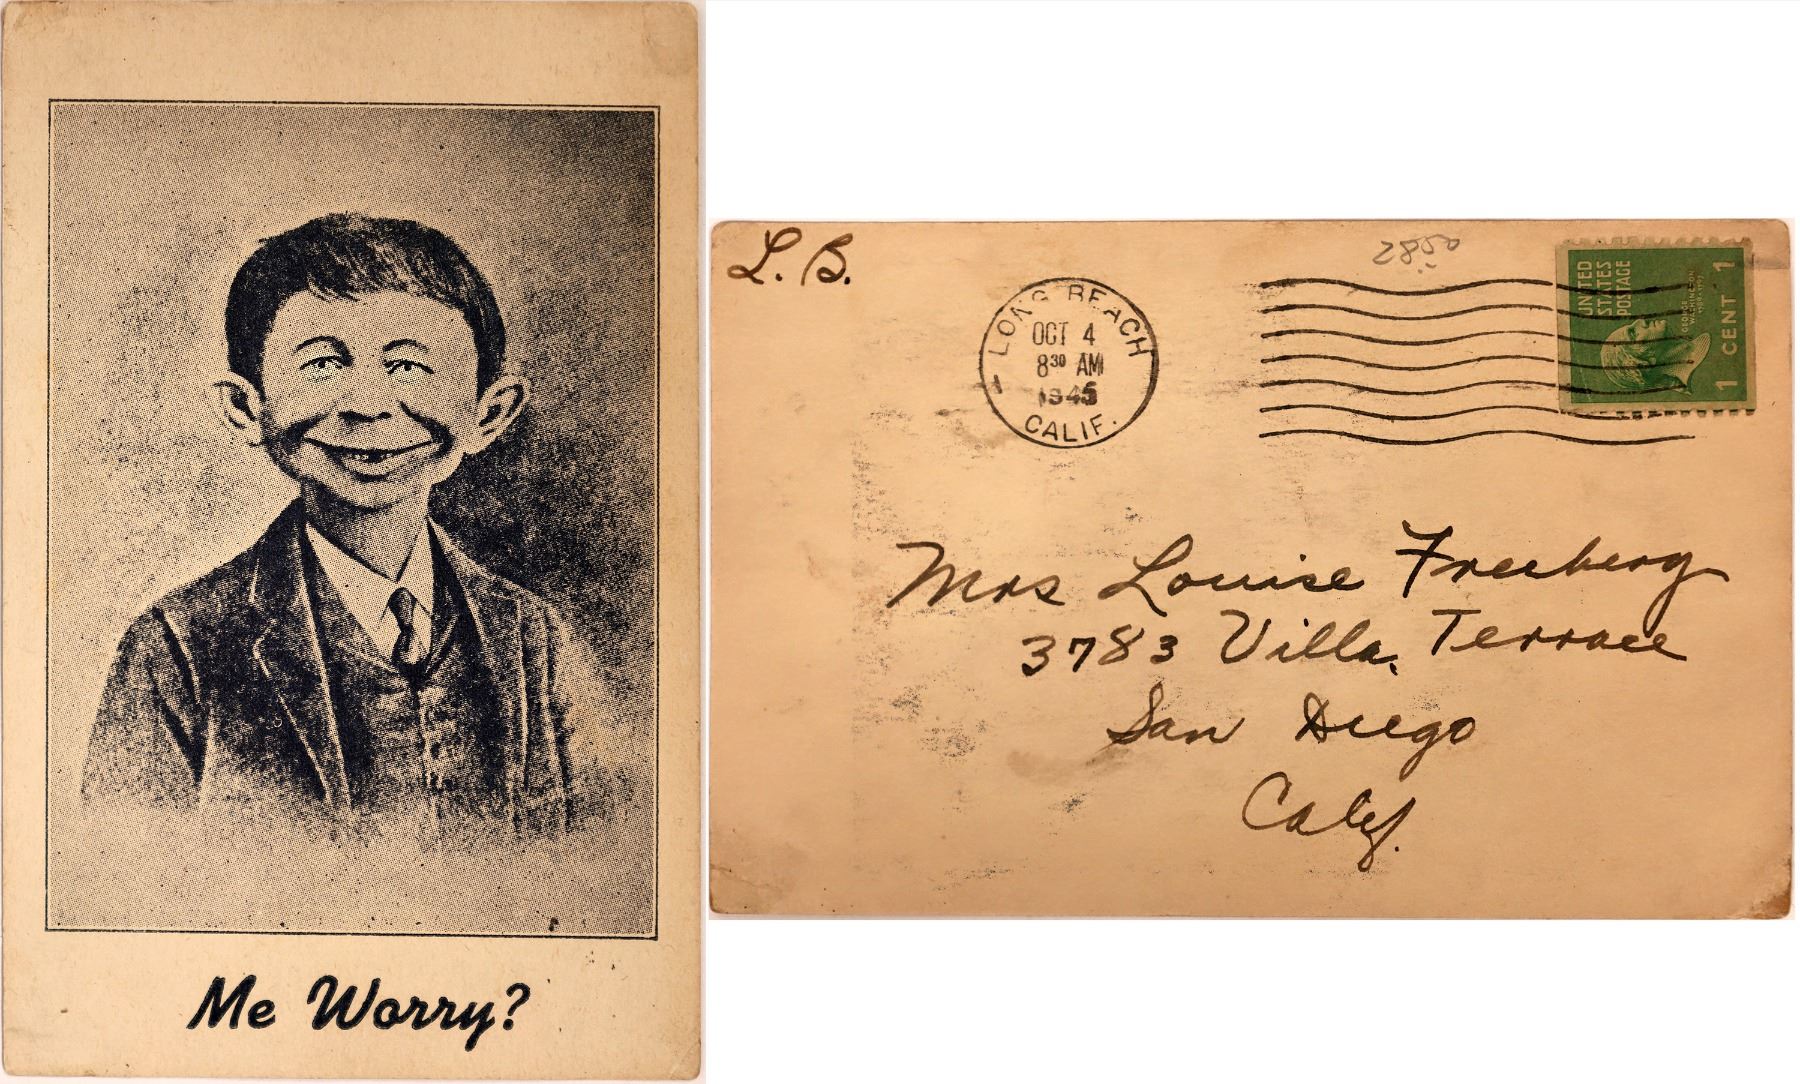 Me Worry?
L. B.
LONG BEACH
OCT 4
8³⁰ AM
1945
CALIF.
1
UNITED
STATES
POSTAGE
GEORGE
WASHINGTON
1 CENT 1
Mrs Louise Freeberg
3783 Villa Terrace
San Diego
Calif.